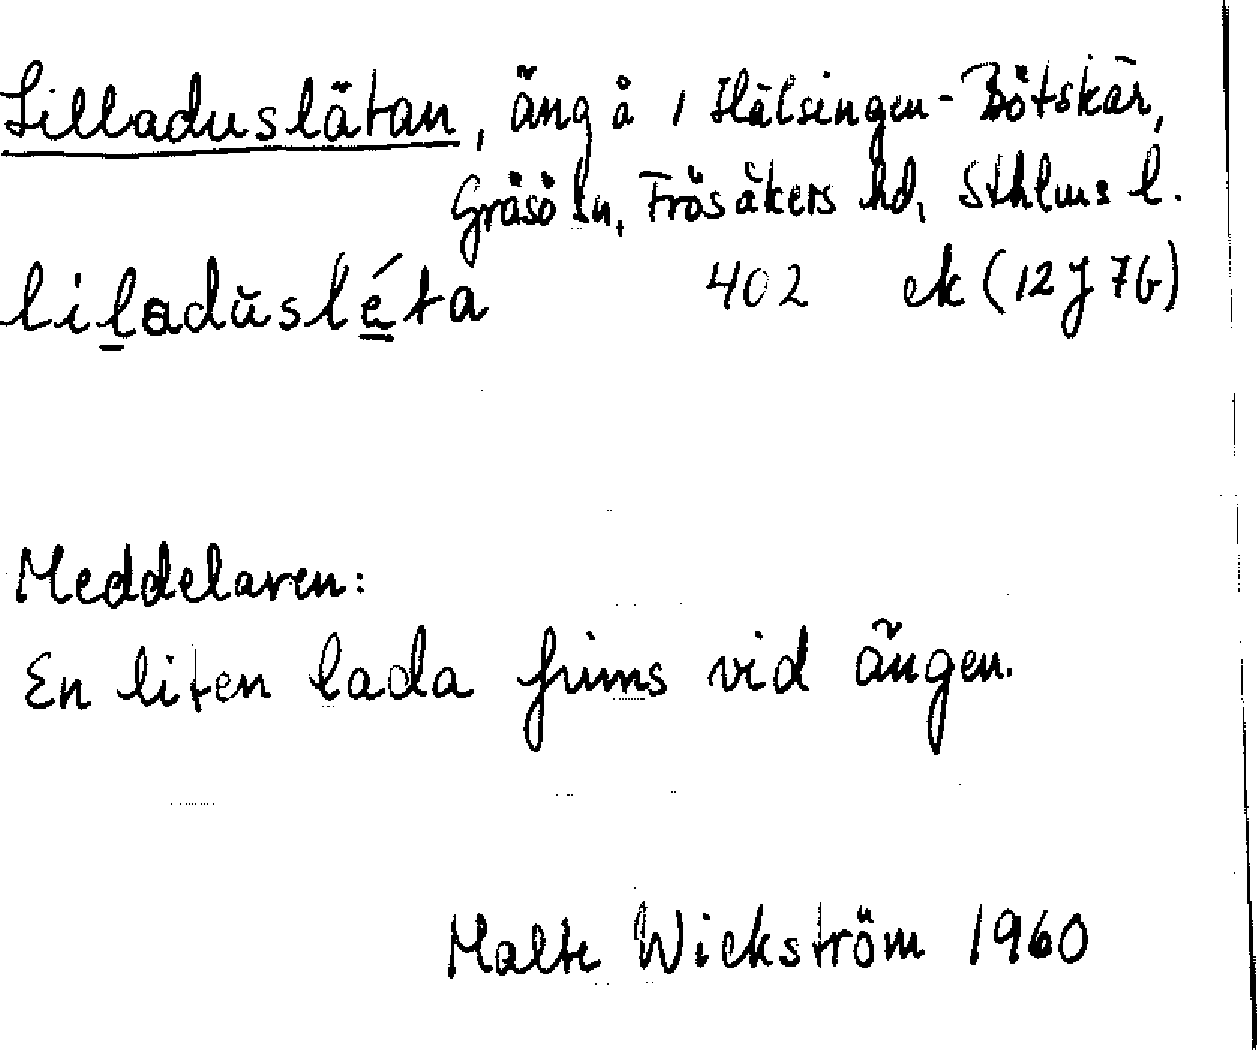 Lilladuslätan, äng å 1 Hälsingen-Bötskär,
Gräsö sn, Frösåkers hd, Sthlms l.
liladŭsléta 402 ek (12J7b)
Meddelaren:
En liten lada finns vid ängen.
Malte Wickström 1960